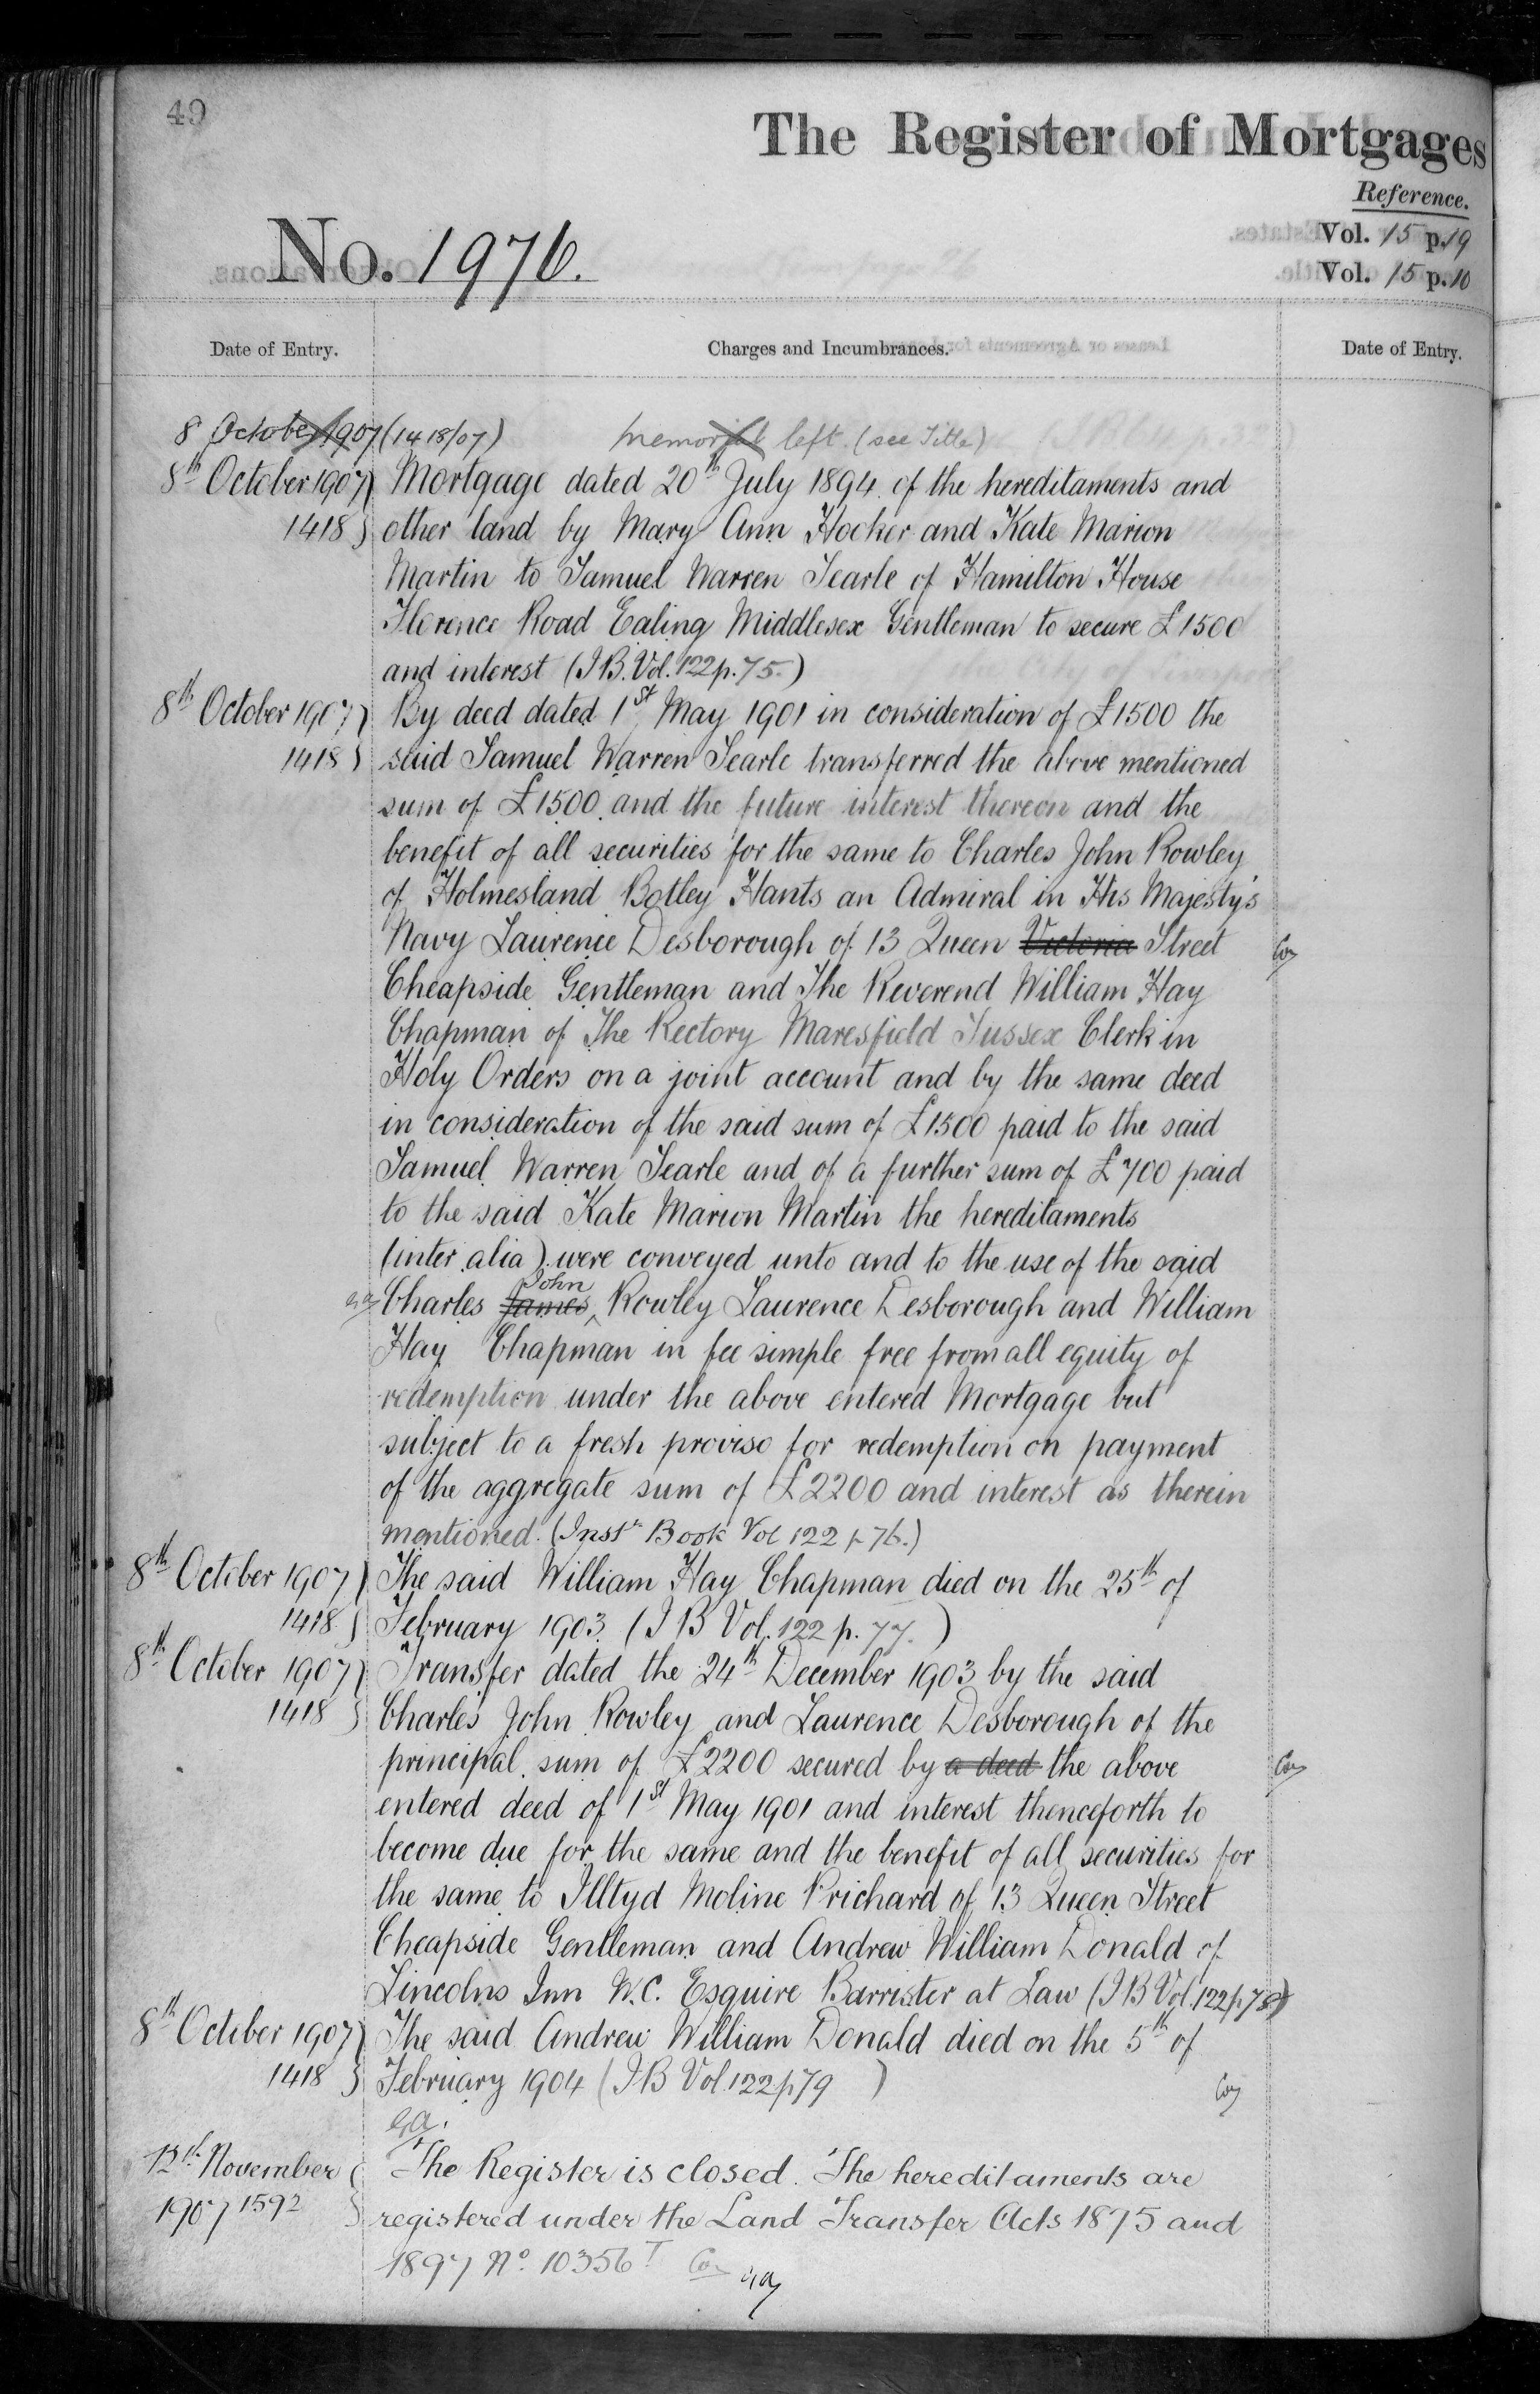 49
The Register of Mortgages
Reference.
No. 1976.
Vol. 15 p. 19
Vol. 15 p. 10
Date of Entry.
Charges and Incumbrances.
Date of Entry.
8 October 1907 (1418/07) memorial left. (see Title)
8th October 1907 } Mortgage dated 20th July 1894 of the hereditaments and
1418 } other land by Mary Ann Hocker and Kate Marion
Martin to Samuel Warren Searle of Hamilton House
Florence Road Ealing Middlesex Gentleman to secure £1500
and interest (I B. Vol. 122 p. 75.)
8th October 1907 } By deed dated 1st May 1901 in consideration of £1500 the
1418 } said Samuel Warren Searle transferred the above mentioned
sum of £1500. and the future interest thereon and the
benefit of all securities for the same to Charles John Rowley
of Holmesland Botley Hants an Admiral in His Majesty's
Navy Laurence Desborough of 13 Queen Victoria Street
Cheapside Gentleman and The Reverend William Hay
Chapman of The Rectory Maresfield Sussex Clerk in
Holy Orders on a joint account and by the same deed
in consideration of the said sum of £1500 paid to the said
Samuel Warren Searle and of a further sum of £700 paid
to the said Kate Marion Martin the hereditaments
(inter alia) were conveyed unto and to the use of the said
Charles James John Rowley Laurence Desborough and William
Hay Chapman in fee simple free from all equity of
redemption under the above entered Mortgage but
subject to a fresh proviso for redemption on payment
of the aggregate sum of £2200 and interest as therein
mentioned. (Instr Book Vol 122 p 76.)
8th October 1907 } The said William Hay Chapman died on the 25th of
1418 } February 1903. (I B Vol. 122 p. 77. )
8th October 1907 } Transfer dated the 24th December 1903 by the said
1418 } Charles John Rowley and Laurence Desborough of the
principal sum of £2200 secured by a deed the above
entered deed of 1st May 1901 and interest thenceforth to
become due for the same and the benefit of all securities for
the same to Illtyd Moline Prichard of 13 Queen Street
Cheapside Gentleman and Andrew William Donald of
Lincolns Inn W.C. Esquire Barrister at Law (I B Vol. 122 p 78)
8th October 1907 } The said Andrew William Donald died on the 5th of
1418 } February 1904 (I B Vol. 122 p 79 )
13th November } The Register is closed. The hereditaments are
1907 1592 } registered under the Land Transfer Acts 1875 and
1897 No. 10356 T